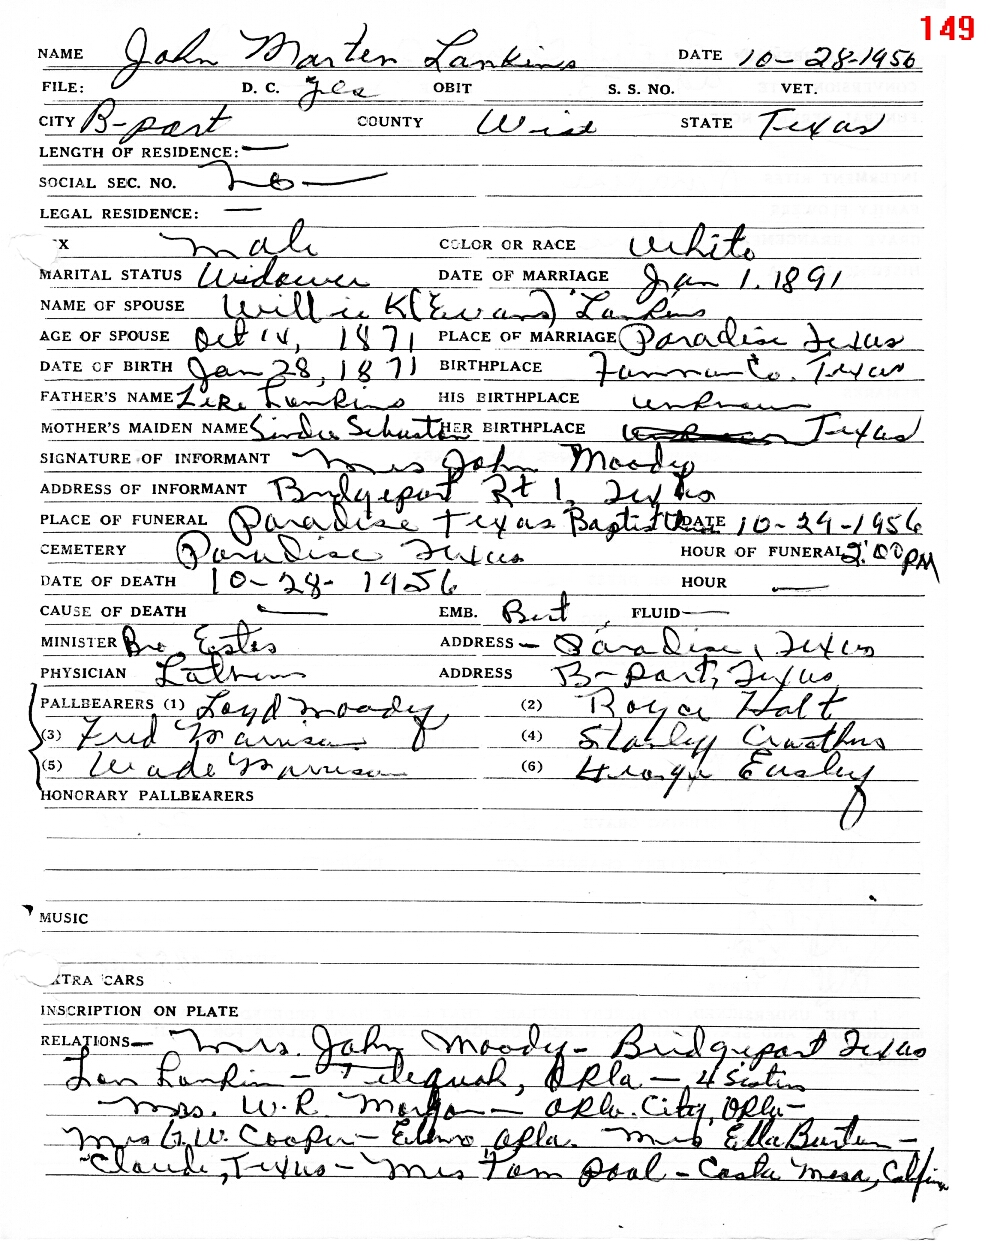 149
NAME John Marten Lankins DATE 10-28-1956
FILE: D. C. yes OBIT S. S. NO. VET.
CITY B-port COUNTY Wise STATE Texas
LENGTH OF RESIDENCE: —
SOCIAL SEC. NO. no —
LEGAL RESIDENCE: —
X male COLOR OR RACE White
MARITAL STATUS Widower DATE OF MARRIAGE Jan 1. 1891
NAME OF SPOUSE Willie K (Evans) Lankins
AGE OF SPOUSE Oct 14, 1871 PLACE OF MARRIAGE Paradise Texas
DATE OF BIRTH Jan 28, 1871 BIRTHPLACE Fannin Co. Texas
FATHER'S NAME Zeke Lankins HIS BIRTHPLACE unknown
MOTHER'S MAIDEN NAME HER BIRTHPLACE Texas
SIGNATURE OF INFORMANT Mrs John Moody
ADDRESS OF INFORMANT Bridgeport Rt 1, Texas
PLACE OF FUNERAL Paradise Texas Baptist DATE 10-29-1956
CEMETERY Paradise Texas HOUR OF FUNERAL 2:00 PM
DATE OF DEATH 10-28-1956 HOUR —
CAUSE OF DEATH — EMB. Burt FLUID —
MINISTER Bro. Estes ADDRESS — Paradise, Texas
PHYSICIAN ADDRESS B-port, Texas
PALLBEARERS (1) Loyd Moody (2) Royce Holt
(3) Fred (4)
(5) Wade (6) Ensley
HONORARY PALLBEARERS
MUSIC
XTRA CARS
INSCRIPTION ON PLATE
RELATIONS — Mrs. John Moody - Bridgeport Texas
Lon Lankin - Okla - 4 Sisters
Mrs. W. R. - Okla. City, Okla -
Mrs G. W. Cooper - Okla. Mrs Ella Burton -
Claude, Texas - Mrs Tom Pool - Costa Mesa,